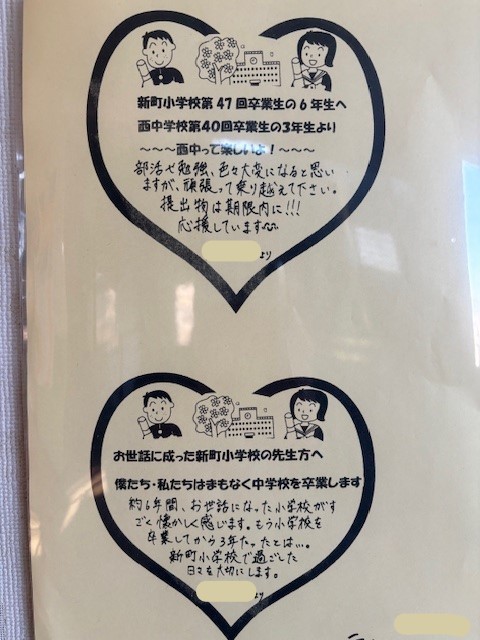 新町小学校第47回卒業生の6年生へ
西中学校第40回卒業生の3年生より
～～～西中って楽しいよ！～～～
部活や勉強、色々大変になると思い
ますが、頑張って乗り越えて下さい。
提出物は期限内に!!!
応援しています
より
お世話に成った新町小学校の先生方へ
僕たち・私たちはまもなく中学校を卒業します
約6年間、お世話になった小学校がす
ごく懐かしく感じます。もう小学校を
卒業してから3年たったとは…。
新町小学校で過ごした
日々を大切にします。
より